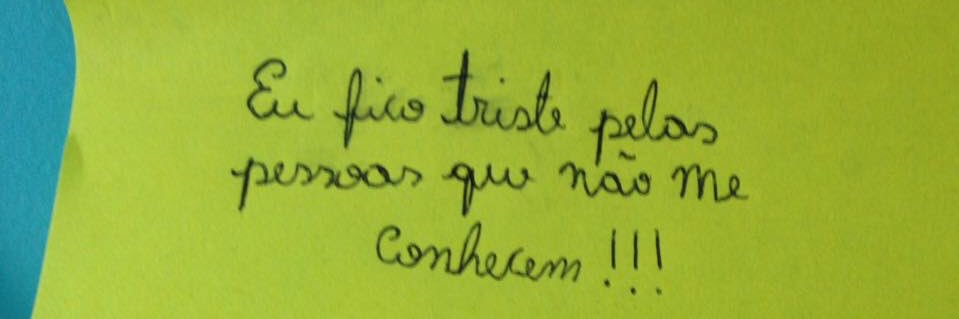 Eu fico triste pelas
pessoas que não me
conhecem!!!